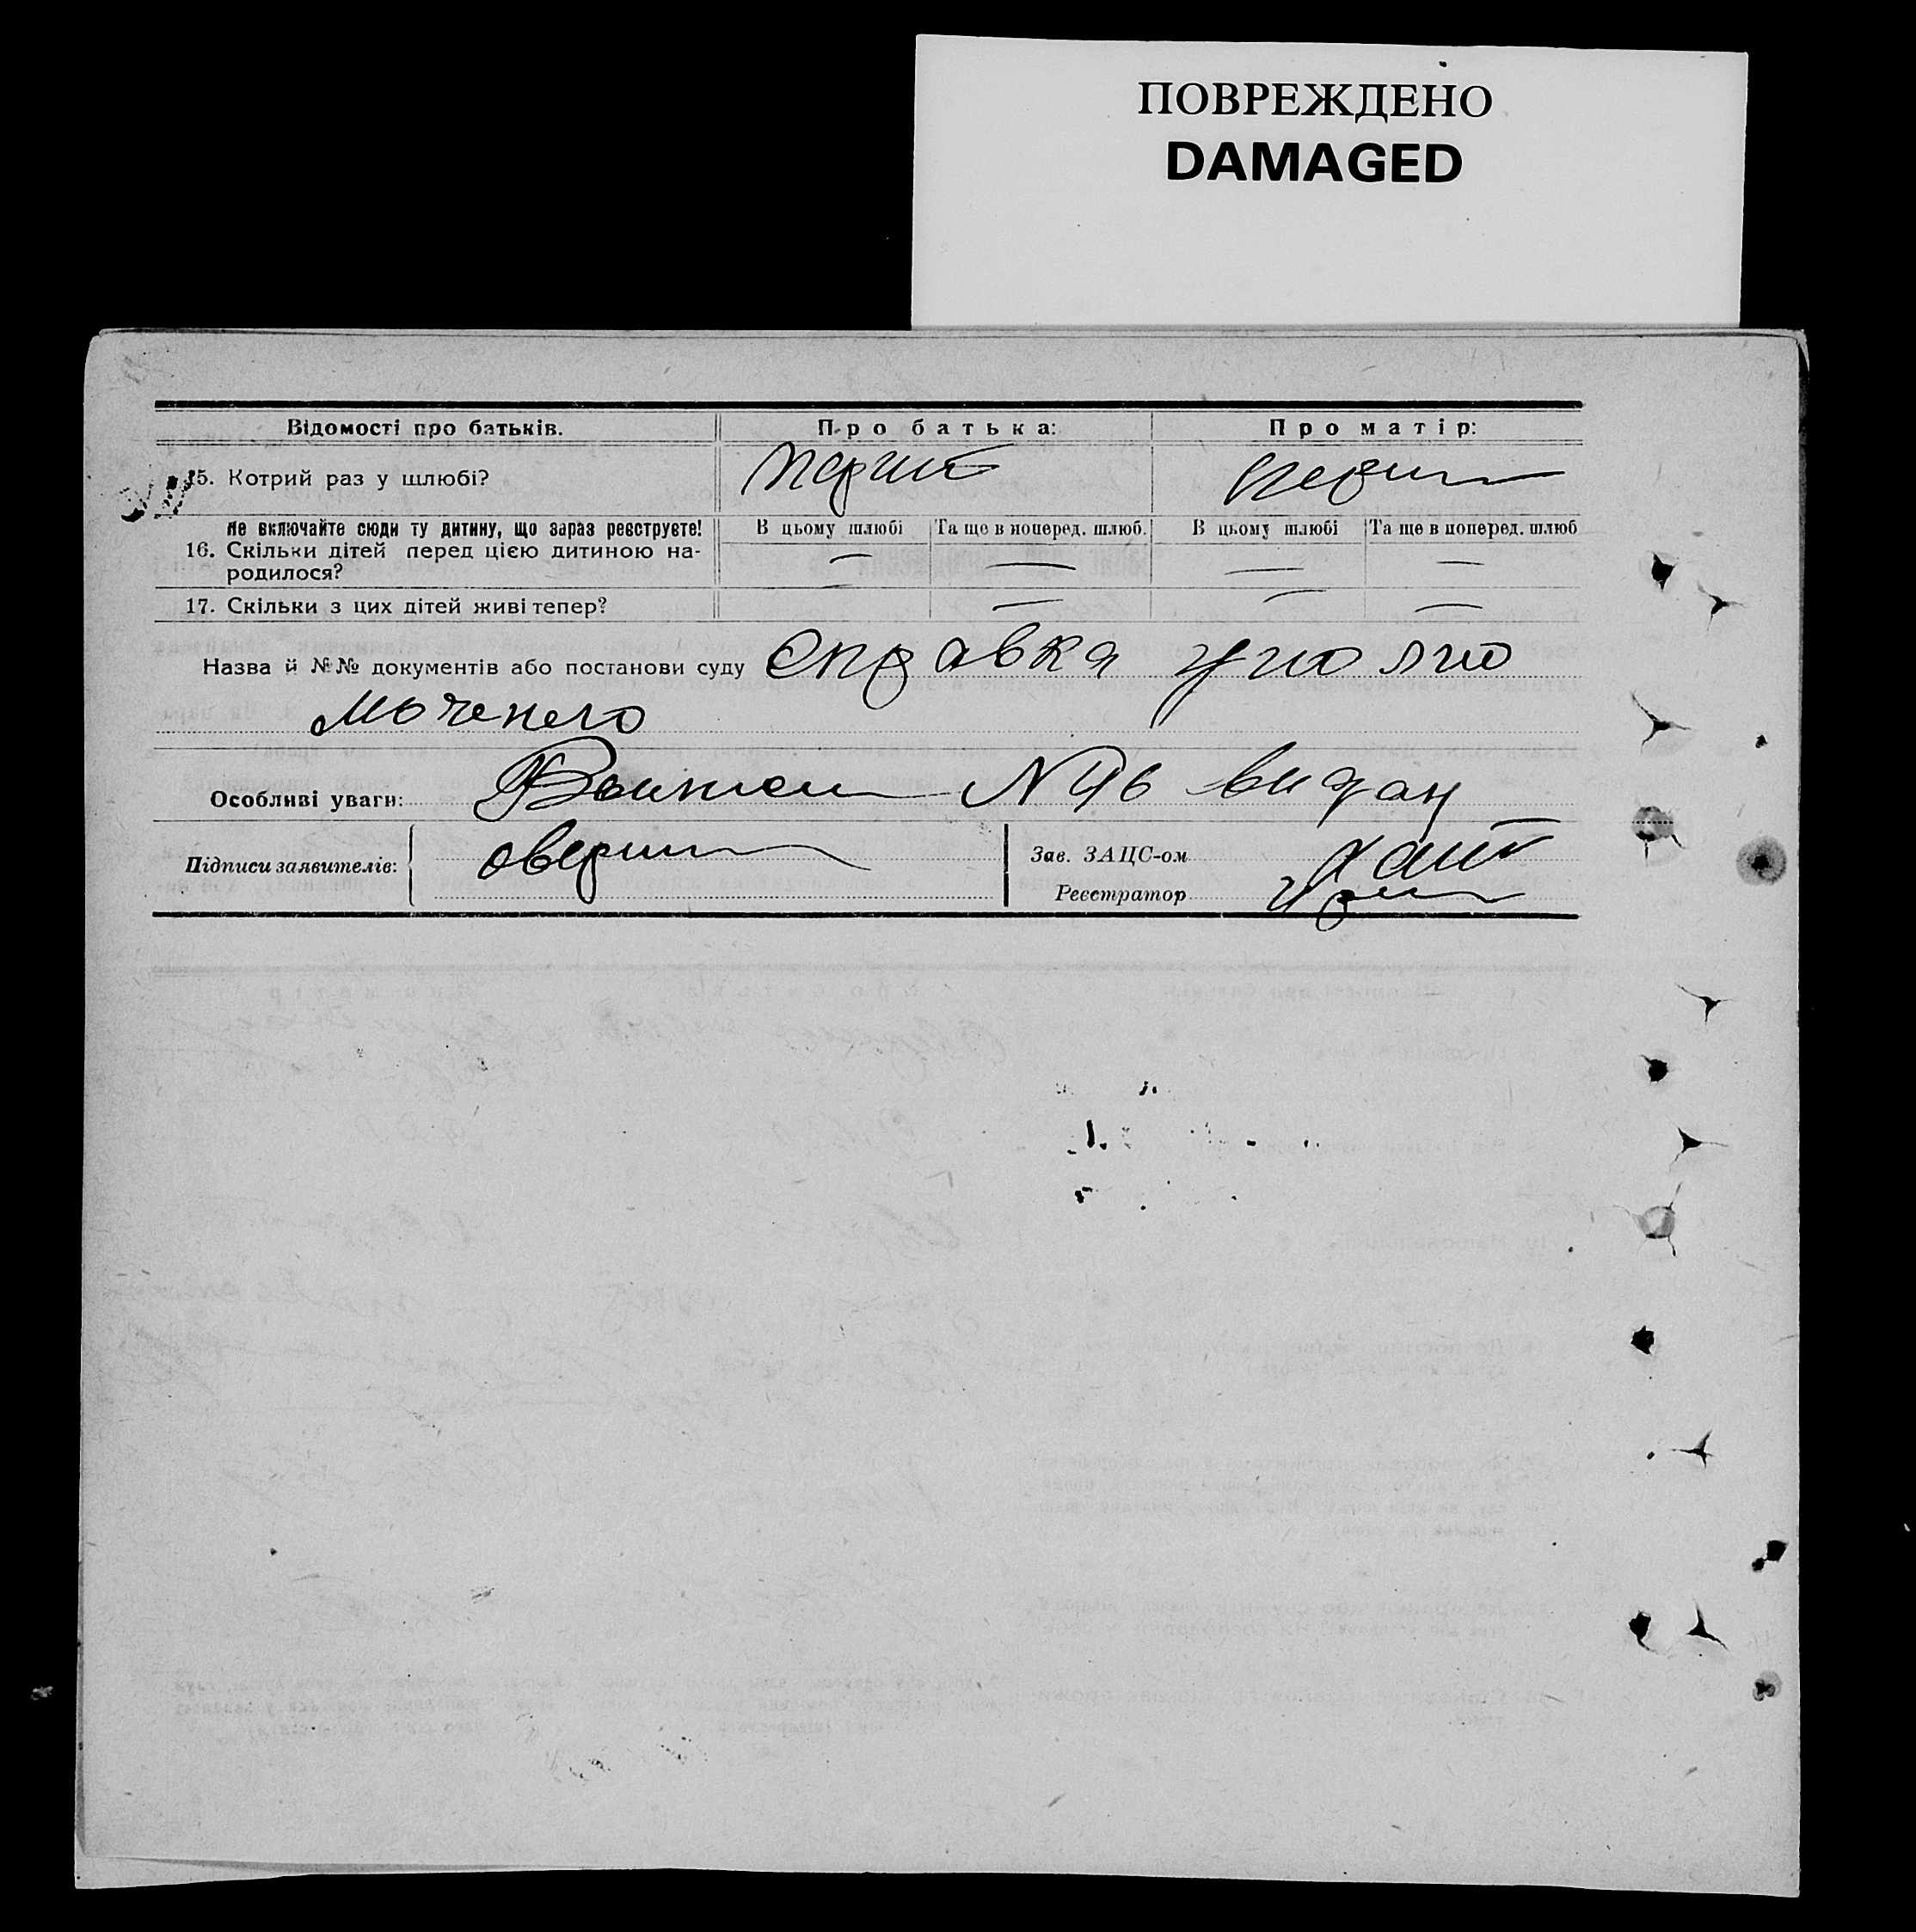 ПОВРЕЖДЕНО
DAMAGED
Відомості про батьків.
Про батька:
Про матір:
15. Котрий раз у шлюбі?
перший
перший
не включайте сюди ту дитину, що зараз реєструєте!
16. Скільки дітей перед цією дитиною на-
родилося?
В цьому шлюбі
Та ще в поперед. шлюб.
В цьому шлюбі
Та ще в поперед. шлюб
—
—
—
—
17. Скільки з цих дітей живі тепер?
—
—
—
—
Назва й №№ документів або постанови суду Справка уполно
моченого
Особливі уваги: N 46 видан
Підписи заявителів:
Зав. ЗАЦС-ом
Реєстратор